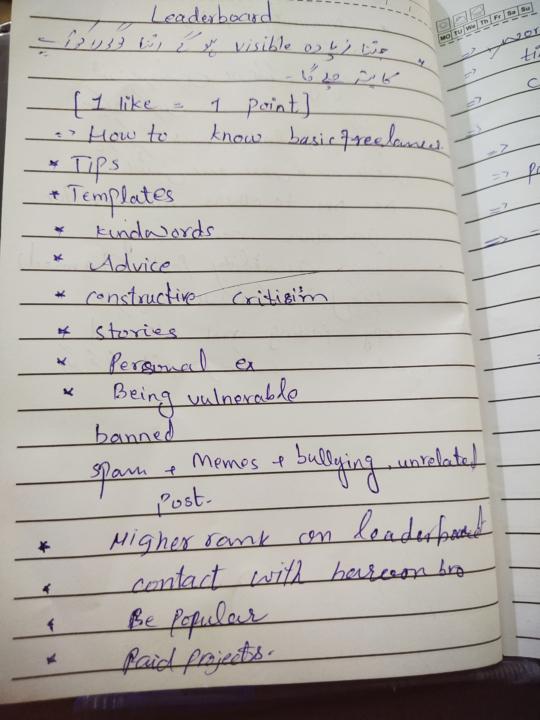 Leaderboard
جتنا زیادہ visible ہو گے اتنا
کا پتہ چلے گا۔
[1 like = 1 point]
=> How to know basic freelancer.
* Tips
* Templates
* Kindwords
* Advice
* constructive critisim
* stories
* Personal ex
* Being vulnerable
banned
spam + Memes + bullying, unrelated
Post.
* Higher rank on leaderboard
* contact with haroon bro
* Be popular
* Paid projects.
MO TU We Th Fr Sa Su